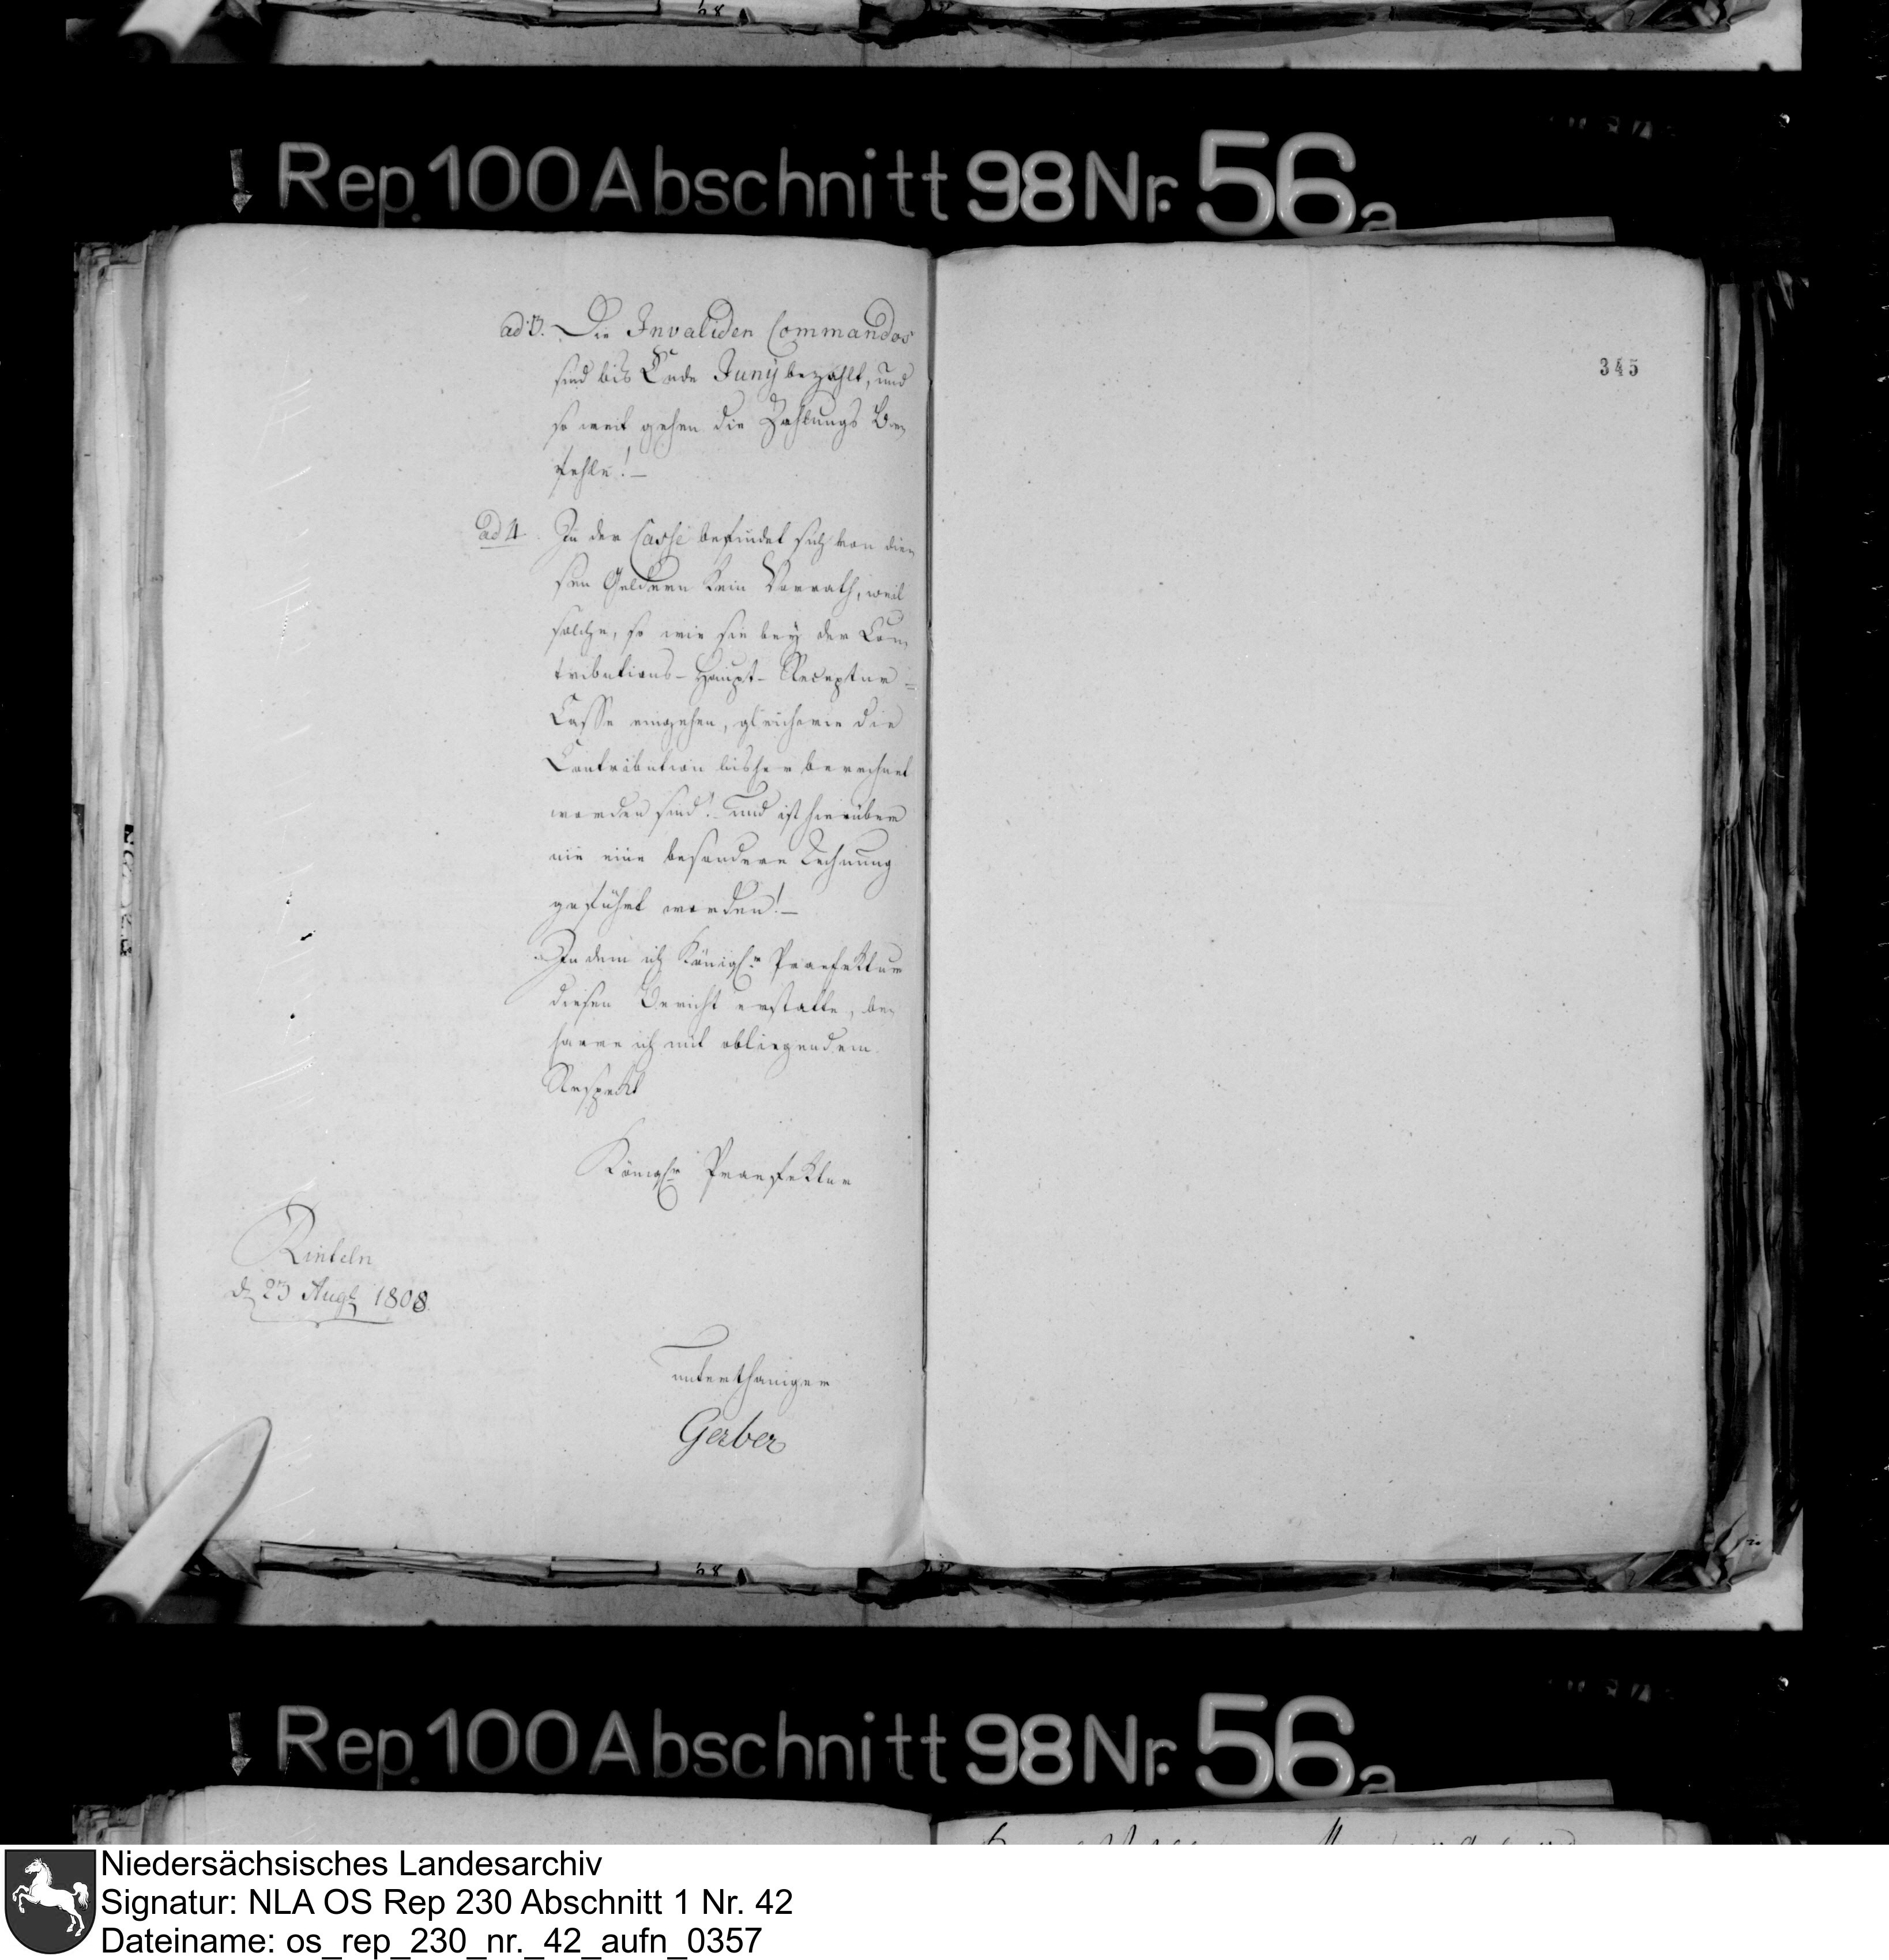 Rep. 100 Abschnitt 98 Nr. 56a
ad 3. Die Invaliden Commandos
sind bis Ende Juny bezahlt, und
so weit gehen die Zahlungs Be-
fehle! –
ad 4. In der Casse befindet sich von die-
sen Geldern kein Vorrath, weil
solche, so wie sie bey der Con-
tributions-Haupt-Receptur-
Casse eingehen, gleichwie die
Contribution bisher berechnet
worden sind! und ist hierüber
nie eine besondere Rechnung
geführt worden! –
In dem ich Königl.r Praefektur
diesen Bericht erstatte, be-
harre ich mit obliegendem
Respekt
Königl.r Praefektur
Rinteln
d. 23 Augt 1808.
unterthäniger
Gerber
345
Rep. 100 Abschnitt 98 Nr. 56a
Niedersächsisches Landesarchiv
Signatur: NLA OS Rep 230 Abschnitt 1 Nr. 42
Dateiname: os_rep_230_nr._42_aufn_0357